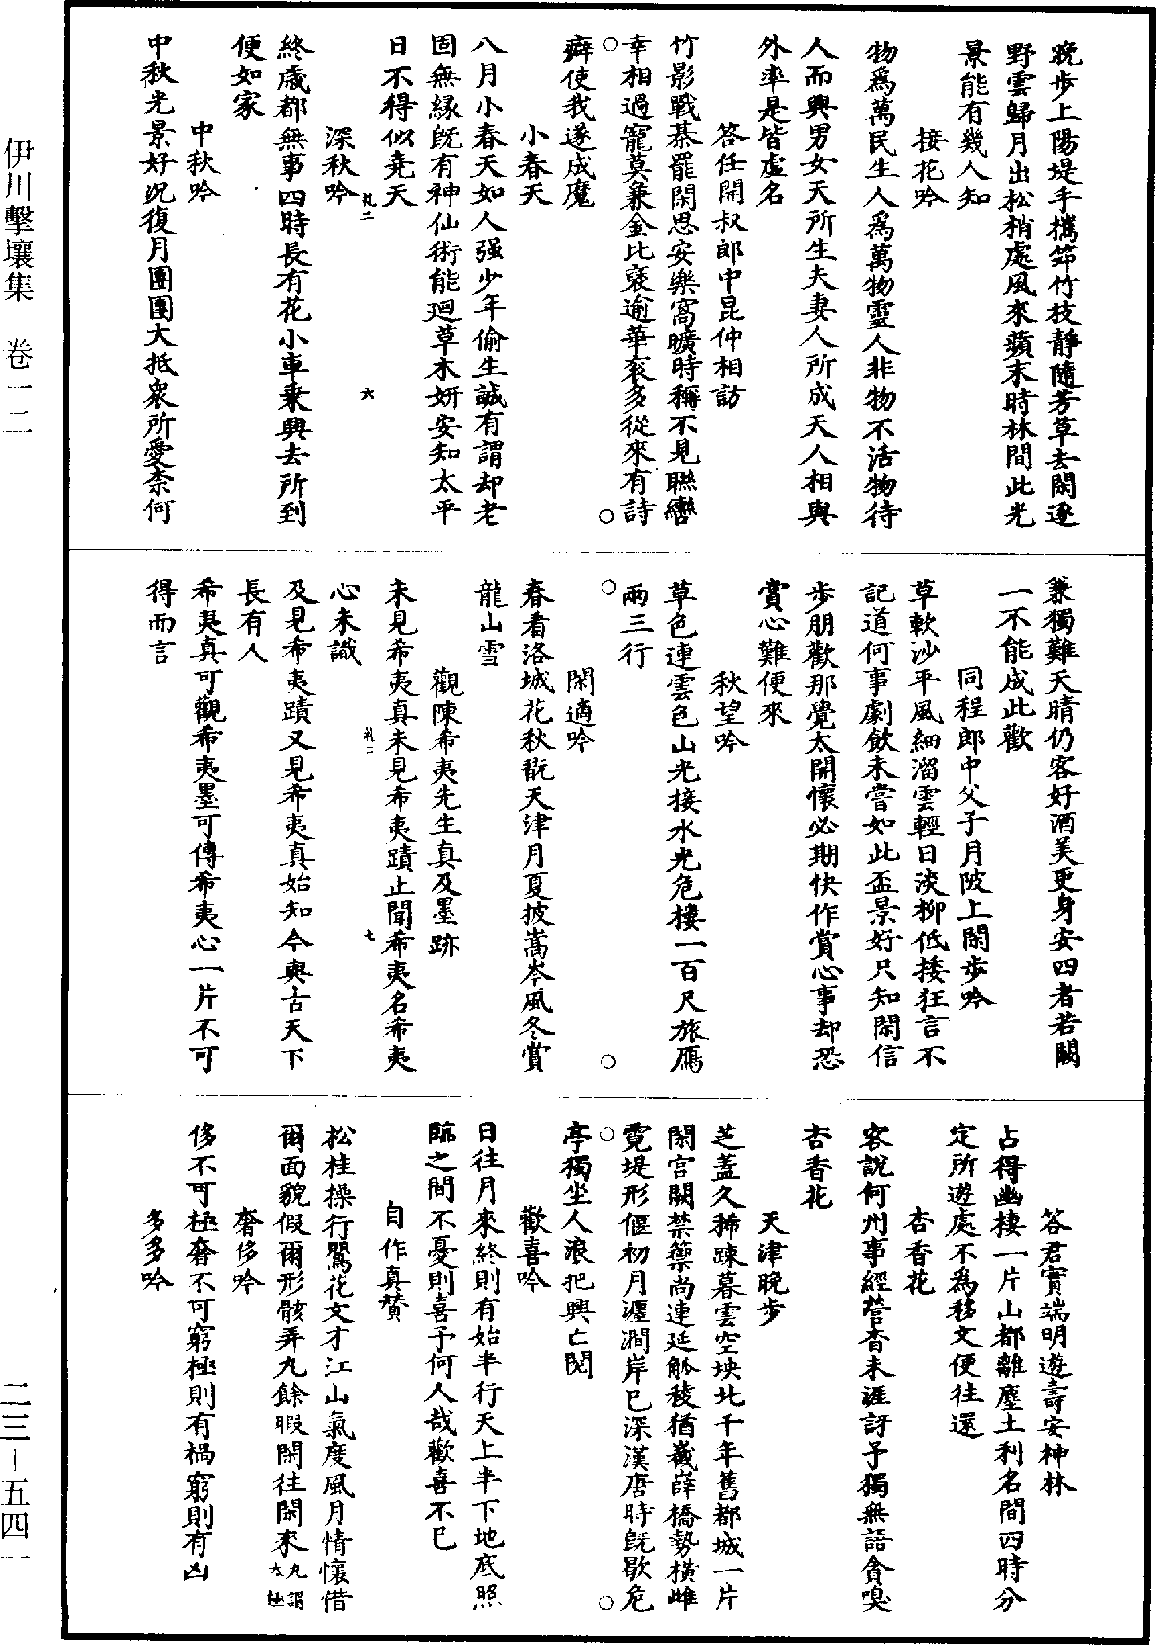 晚步上陽堤手攜筇竹枝靜隨芳草去閑逐
野雲歸月出松梢處風來蘋末時林間此光
景能有幾人知
接花吟
物爲萬民生人爲萬物靈人非物不活物待
人而興男女天所生夫妻人所成天人相與
外率是皆虛名
答任開叔郎中昆仲相訪
竹影戰棊罷閑思安樂窩曠時稱不見聯轡
幸相過寵莫兼金比褒逾華衮多從來有詩
癖使我遂成魔
小春天
八月小春天如人強少年偷生誠有謂却老
固無緣既有神仙術能迴草木妍安知太平
日不得似堯天
深秋吟
終歲都無事四時長有花小車乘興去所到
便如家
中秋吟
中秋光景好況復月團團大抵衆所愛柰何
兼獨難天晴仍客好酒美更身安四者若闕
一不能成此歡
同程郎中父子月陂上閑步吟
草軟沙平風細溜雲輕日淡柳低接狂言不
記道何事劇飲未嘗如此盃景好只知閑信
步朋歡那覺太開懷必期快作賞心事却恐
賞心難便來
秋望吟
草色連雲色山光接水光危樓一百尺旅鴈
兩三行
閑適吟
春看洛城花秋翫天津月夏披嵩岑風冬賞
龍山雪
觀陳希夷先生真及墨跡
未見希夷真未見希夷蹟止聞希夷名希夷
心未識
及見希夷蹟又見希夷真始知今與古天下
長有人
希夷真可觀希夷墨可傳希夷心一片不可
得而言
答君實端明遊壽安神林
占得幽棲一片山都離塵土利名間四時分
定所遊處不為移文便往還
杏香花
客說何州事經營杳未涯訝予獨無語貪嗅
杏香花
天津晚步
芝蓋久稀踈暮雲空坱北千年舊都城一片
閑宮闕禁籞尚連延觚稜猶嶻薛橋勢橫雌
霓堤形偃初月瀍澗岸已深漢唐時既歇危
亭獨坐人浪把興亡閱
歡喜吟
日往月來終則有始半行天上半下地底照
臨之間不憂則喜予何人哉歡喜不已
自作真贊
松桂操行鶯花文才江山氣度風月情懷借
爾面貌假爾形骸弄丸餘暇閑往閑來丸謂太極
奢侈吟
侈不可極奢不可窮極則有禍窮則有凶
多多吟
伊川擊壤集　卷一二
二三—五四一